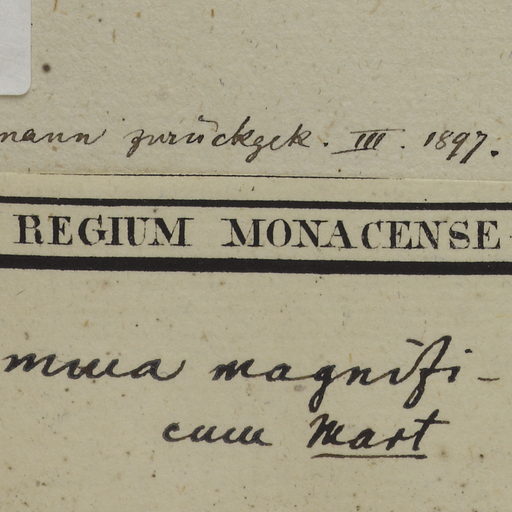 mann zurückgek. III. 1897.
REGIUM MONACENSE
magnifi-
cum Mart